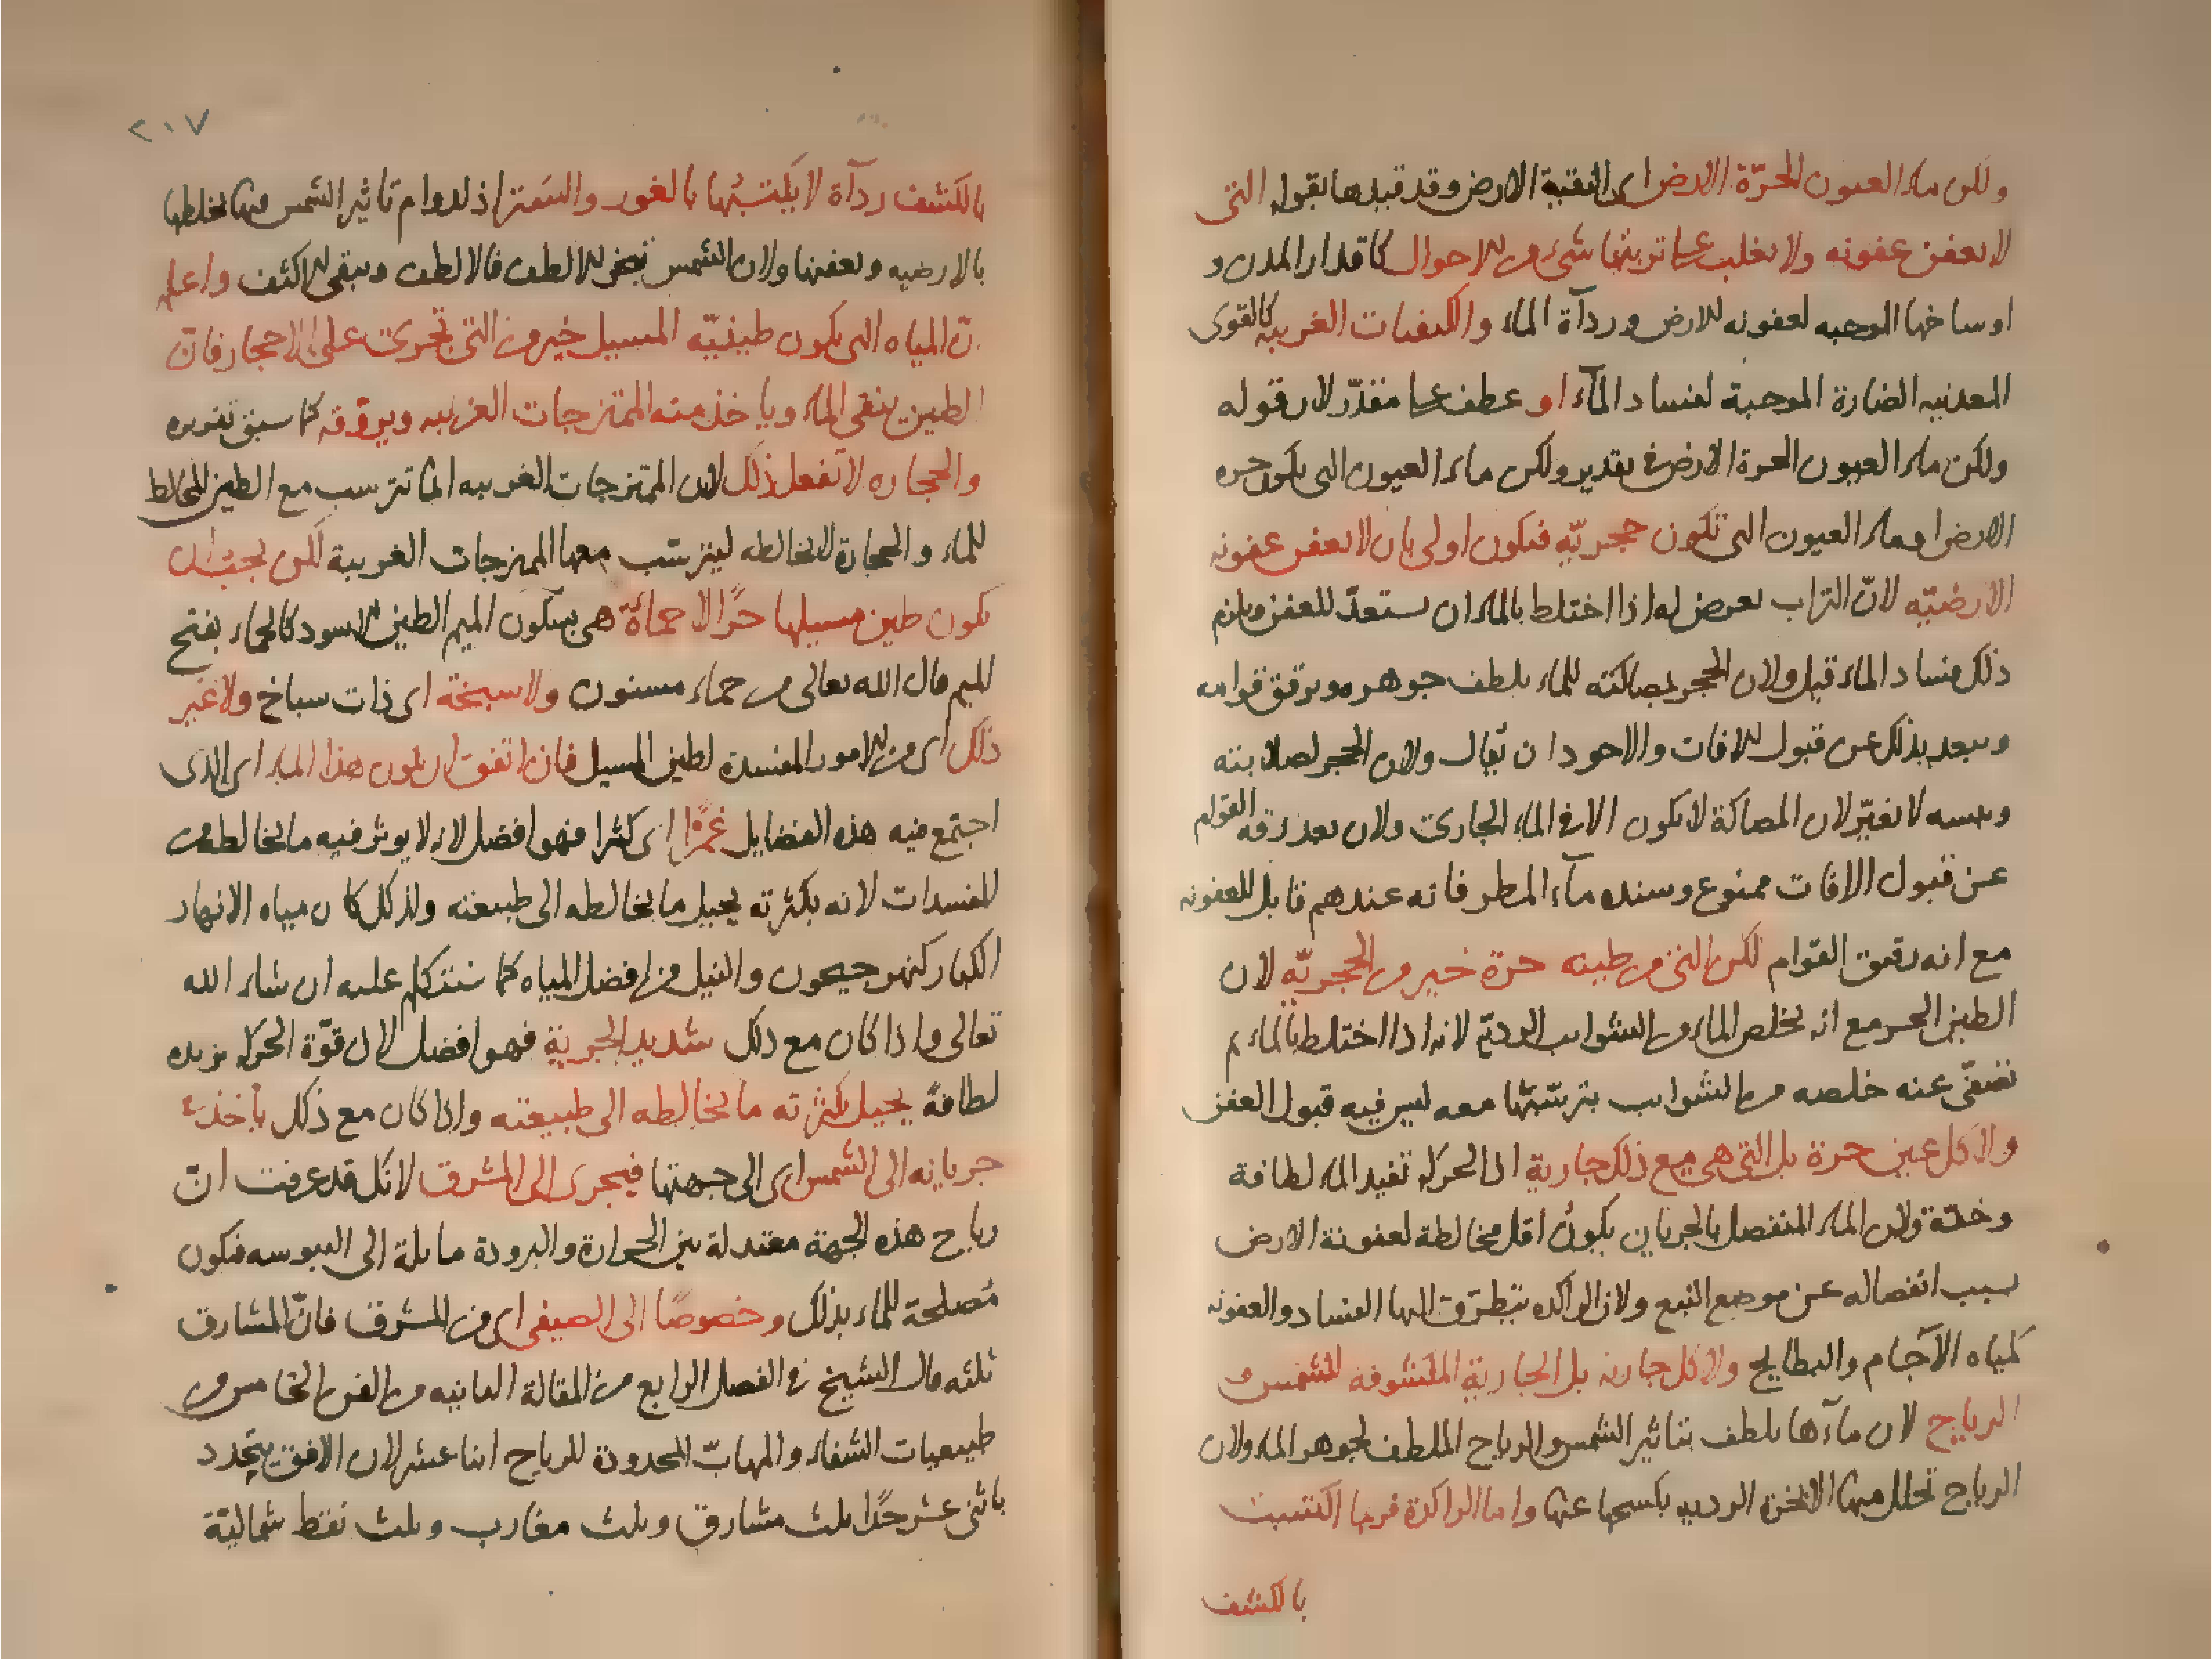 ولكن ماء العيون الحرّة الارض اى النقية الارض وقد قيدها بقوله التى
لا يعفن عفونه ولا يغلب على تربتها شئ من الاحوال كاقذار المدن و
اوساخها الموجبه لعفونه الارض ورداة الماء والكيفيات الغريبه كالقوى
المعدنيه الضارة الموجبة لفساد المآء او عطف على مقدّر لان قوله
ولكن ماء العيون الحرة الارض فى تقدير ولكن ماء العيون التى يكون حره
الارض او ماء العيون التى تكون حجريّه فيكون اولى بان لا يعفن عفونه
الارضيّه لانّ التراب يعرض له اذا اختلط بالماء ان يستعدّ للعفن ويلزم
ذلك فساد الماء قيل ولان الحجر بمصاكته للماء يلطف جوهره ويرقق قوامه
ويبعد بذلك عن قبول الافات والاجود ان يقال ولان الحجر لصلابته
ويبسه لا يغيّر لان المصاكة لا يكون الا فى الماء الجارى ولان بعد رقه القوام
عن قبول الافات ممنوع وسنده مآء المطر فانه عندهم قابل للعفونه
مع انه رقيق القوام لكن التى من طينه حرة خير من الحجريّه لان
الطين الحر مع انه يخلص الماء من الشوايب الرديّه لانه اذا اختلط بالماء ثم
تصفّى عنه خلصه من الشوايب بترسّبها معه ليس فيه قبول العفن
ولا كل عين حرة بل التى هى مع ذلك جارية اذ الحركة تفيد الماء لطافة
وخفّة ولان الماء المنفصل بالجريان يكون اقل مخالطة لعفونة الارض
بسبب انفصاله عن موضع النبع ولان الراكده يتطرّق اليها الفساد والعفونه
كمياه الآجام والبطايح ولا كل جارية بل الجارية المكشوفه للشمس و
الرياح لان مآءها يلطف بتاثير الشمس والرياح الملطف لجوهر الماء ولان
الرياح تحلل منها الابخرة الرديه بكسحها عنها واما الراكدة فربما اكتسبت
بالكشف
٢١٧
بالكشف رداة لا يكتسبها بالغور والستر اذ لدوام تاثير الشمس فيها يخلطها
بالارضيه ويعفنها ولان الشمس تبخر الالطف فالالطف ويبقى الاكثف واعلم
انّ المياه التى يكون طينيّه المسيل خير من التى تجرى على الاحجار فانّ
الطين ينقى الماء وياخذ منه الممتزجات الغريبه ويروّقه كما سبق تقريره
والحجاره لا تفعل ذلك لان الممتزجات الغريبه انما تترسب مع الطين المخالط
للماء والحجارة لا يخالطه ليترسّب معها الممتزجات الغريبة لكن يجب ان
يكون طين مسيلها حرًّا لا حمأة هى بسكون الميم الطين الاسود كالحماء بفتح
الميم قال الله تعالى من حماء مسنون ولا سبخة اى ذات سباخ ولا غير
ذلك اى من الامور المفسدة لطين المسيل فان اتفق ان يكون هذا الماء اى الذى
اجتمع فيه هذه الفضايل غمرًا اى كثيرا فهو افضل لانه لا يوثر فيه ما يخالطه من
المفسدات لانه بكثرته يحيل ما يخالطه الى طبيعته ولذلك كان مياه الانهار
الكبار كنهر جيحون والنيل من افضل المياه كما سنتكلم عليه ان شاء الله
تعالى واذا كان مع ذلك شديد الجرية فهو افضل لان قوّة الحركة يزيده
لطافة يحيل بكثرته ما يخالطه الى طبيعته واذا كان مع ذلك ياخذ
جريانه الى الشمس اى الى جهتها فيجرى الى المشرق لانك قد عرفت انّ
رياح هذه الجهة معتدلة بين الحرارة والبرودة مايلة الى اليبوسه فيكون
مصلحة للماء بذلك وخصوصًا الى الصيفى اى من المشرق فانّ المشارق
ثلثه قال الشيخ فى الفصل الرابع من المقالة الثانيه من الفن الخامس من
طبيعيات الشفاء والمهابّ المحدودة للرياح اثنا عشر لان الافق يتحدد
باثنى عشر حدًّا ثلث مشارق وثلث مغارب وثلث نقط شماليّة